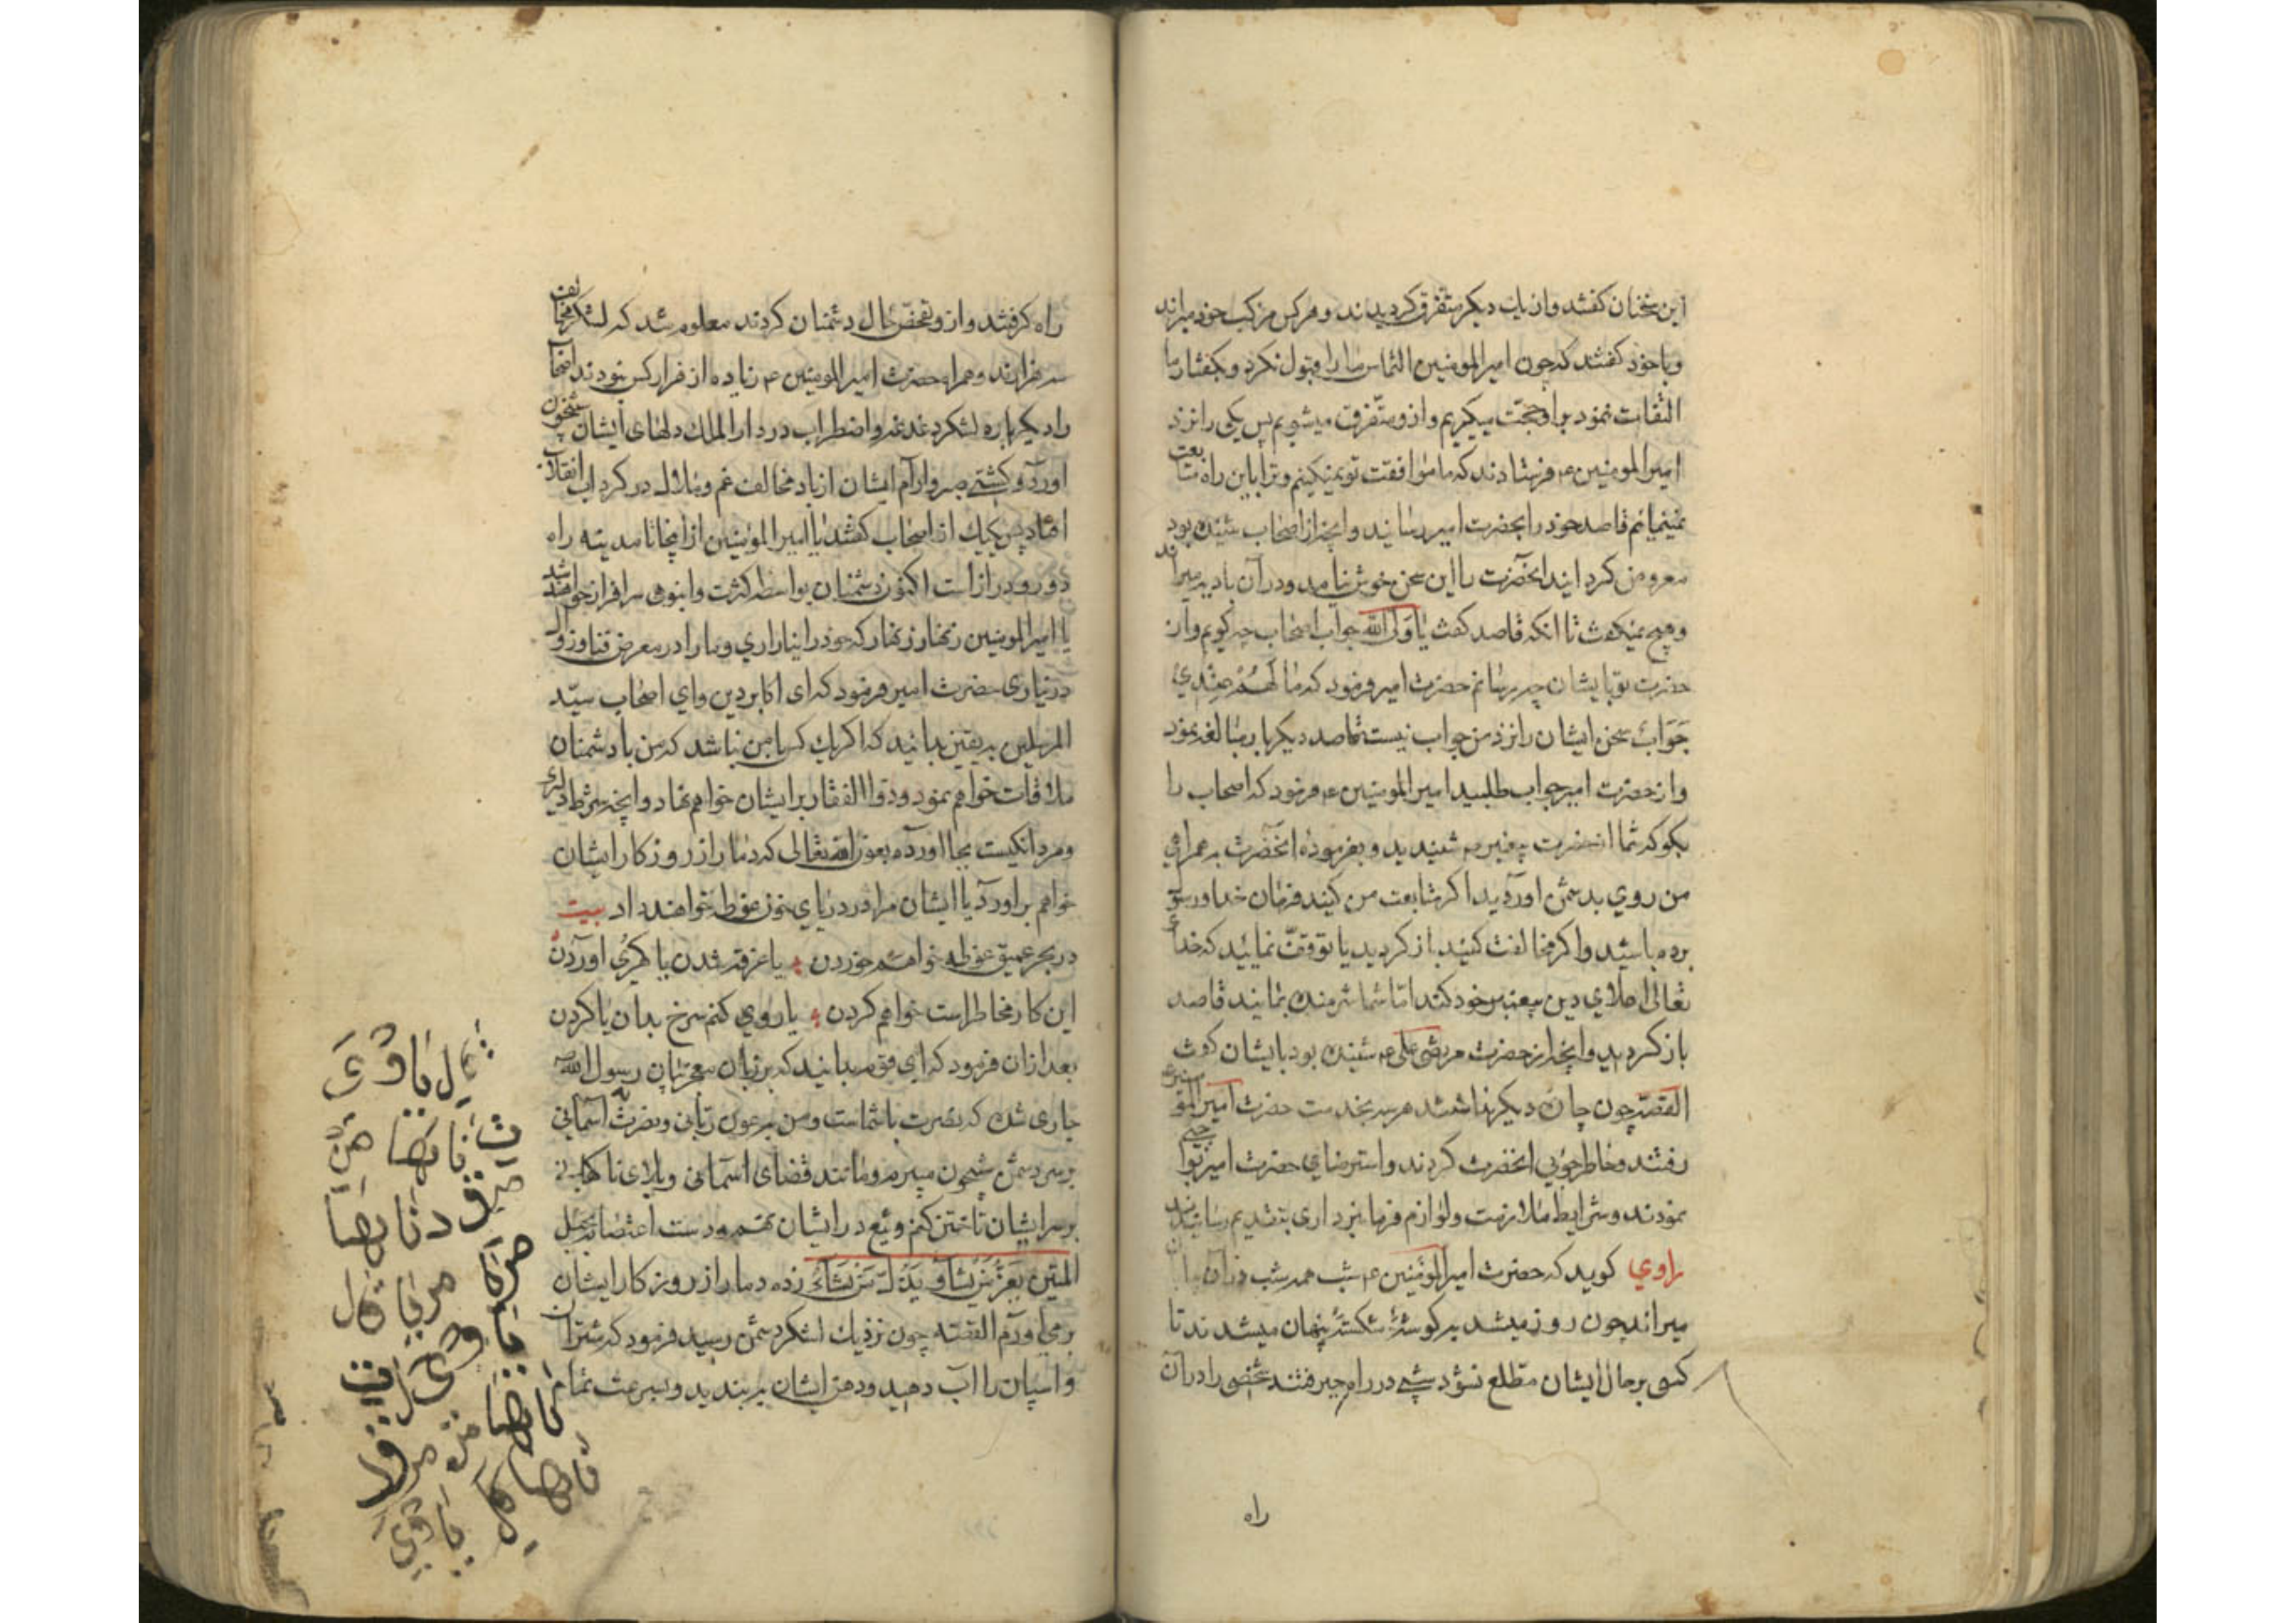 این سخنان کفتند و از یک دیکر متفرق کردیدند و هر کس مرکب خود میراند
و با خود کفتند که چون امیر المومنین التماس ما را قبول نکرد و بکفتار ما
التفات نمود براو حجت میکیریم و از و متفرق میشویم پس یکی را نزد
امیر المومنین ع فرستادند که ما موافقت تو نمیکنیم و ترا باین راه متابعت
نمینمایم قاصد خود را بحضرت امیر رسانید و آنچه از اصحاب شنیده بود
معروض کردانید آنحضرت را این سخن خوش نیامد و در آن بادیه میراند
و هیچ نمیکفت تا انکه قاصد کفت یا ولی الله جواب اصحاب چه کویم و از
حضرت تو بایشان چه رسانم حضرت امیر فرمود که ما لهم عندی
جواب سخن ایشان را نزد من جواب نیست قاصد دیکر بار مبالغه نمود
و از حضرت امیر جواب طلبید امیر المومنین ع فرمود که اصحاب را
بکو که شما از حضرت پیغمبر شنیدید و بفرموده انحضرت به همراهی
من روی بدشمن اوردید اکر متابعت من کنید فرمان خدا و رسول
برده باشید و اکر مخالفت کنید باز کردید یا توقف نمایید که خدا
تعالی اعلای دین پیغمبر خود کند اما شما شرمنده بمانید قاصد
باز کردید و آنچه از حضرت مرتضی علی ع شنیده بود بایشان کفت
القصه چون چاره دیکر نداشتند هر سه بخدمت حضرت امیر المومنین ع
رفتند و خاطر جوئی انحضرت کردند و استرضای حضرت امیر بواجبی
نمودند و شرایط ملازمت و لوازم فرمانبرداری بتقدیم رسانیدند
راوی کوید که حضرت امیر المومنین ع شب همه شب در آن بیابان
میراند چون روز میشد بر کوشه شکسته پنهان میشدند تا
کسی بر حال ایشان مطلع نشود شبی در راه میرفتند شخصی را در آن
راه
راه کرفتند و از و تفحص حال دشمنان کردند معلوم شد که لشکر مخالف
سه هزارند و همراه حضرت امیر المومنین ع زیاده از هزار کس نبودند اصحاب
را دیکر باره لشکر دغدغه و اضطراب در دار الملک دلهای ایشان شبخون
آورد و کشتی صبر و آرام ایشان از باد مخالف غم و ملال در کرداب انقلاب
افتاد پس یک یک از اصحاب کفتند یا امیر المومنین از اینجا تا مدینه راه
دور و دراز است اکنون دشمنان بواسطه کثرت و انبوهی سرافراز خواهند شد
یا امیر المومنین زنهار زنهار که خود را نیازاری و ما را در معرض فنا و زوال
در نیاری حضرت امیر فرمود که ای اکابر دین و ای اصحاب سید
المرسلین به یقین بدانید که اکر یک کس با من نباشد که من با دشمنان
ملاقات خواهم نمود و ذو الفقار بر ایشان خواهم نهاد و آنچه شرط دلیری
و مردانکیست بجا اورده بعون الله تعالی که دمار از روزکار ایشان
خواهم براورد یا ایشان مرا در دریای خون غوطه خواهند داد بیت
در بحر عمیق غوطه خواهم خوردن یا غرقه شدن یا کهری اوردن
این کار مخاطر است خواهم کردن یا روی کنم سرخ بدان یا کردن
بعد از ان فرمود که ای قوم بدانید که بر زبان معجز بیان رسول الله
جاری شده که نصرت با شماست و من به عون ربانی و نصرت آسمانی
بر سر دشمن شبخون میبرم و مانند قضای اسمانی و بلای ناکهانی
بر سر ایشان تاختن کنم و تیغ در ایشان نهم و دست اعتصام بحبل
المتین یعز من یشاء و یذل من یشاء زده دمار از روزکار ایشان
بر می اورم القصه چون نزدیک لشکر دشمن رسید فرمود که شتران
و اسپان را آب دهید و دهن ایشان بر بندید و بسرعت تمام